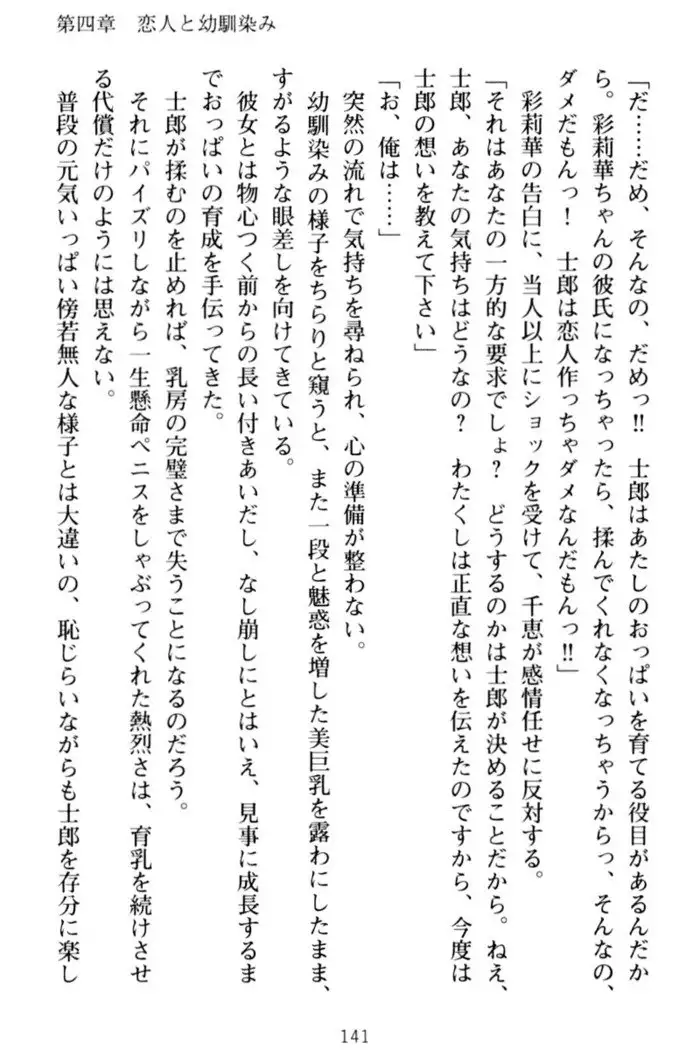 第四章　恋人と幼馴染み
「だ……だめ、そんなの、だめっ‼　士郎はあたしのおっぱいを育てる役目があるんだか
ら。彩莉華ちゃんの彼氏になっちゃったら、揉んでくれなくなっちゃうからっ、そんなの、
ダメだもんっ！　士郎は恋人作っちゃダメなんだもんっ‼」
彩莉華の告白に、当人以上にショックを受けて、千恵が感情任せに反対する。
「それはあなたの一方的な要求でしょ？　どうするのかは士郎が決めることだから。ねえ、
士郎、あなたの気持ちはどうなの？　わたくしは正直な想いを伝えたのですから、今度は
士郎の想いを教えて下さい」
「お、俺は……」
突然の流れで気持ちを尋ねられ、心の準備が整わない。
幼馴染みの様子をちらりと窺うと、また一段と魅惑を増した美巨乳を露わにしたまま、
すがるような眼差しを向けてきている。
彼女とは物心つく前からの長い付きあいだし、なし崩しにとはいえ、見事に成長するま
でおっぱいの育成を手伝ってきた。
士郎が揉むのを止めれば、乳房の完璧さまで失うことになるのだろう。
それにパイズリしながら一生懸命ペニスをしゃぶってくれた熱烈さは、育乳を続けさせ
る代償だけのようには思えない。
普段の元気いっぱい傍若無人な様子とは大違いの、恥じらいながらも士郎を存分に楽し
141